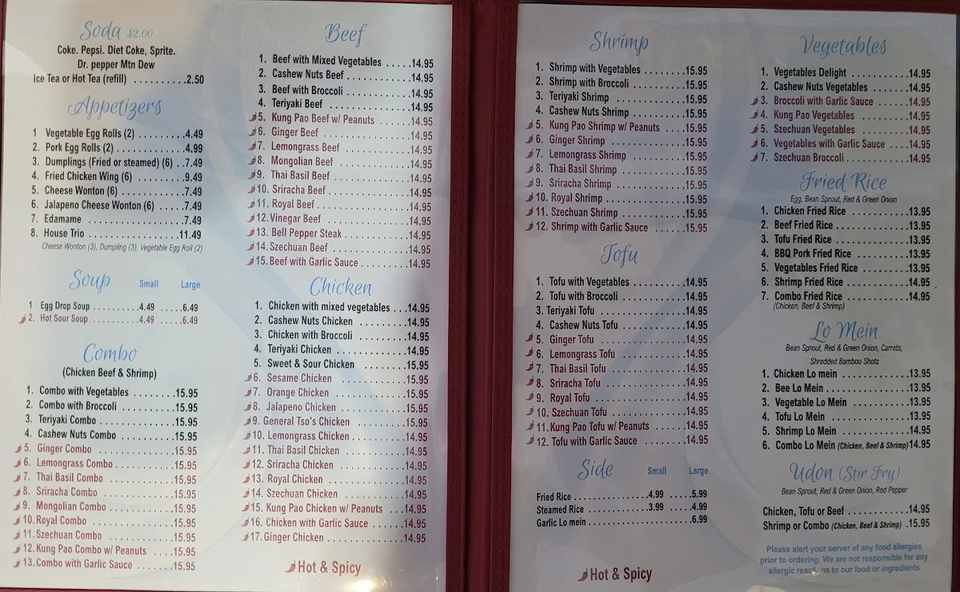 Soda $2.00
Coke. Pepsi. Diet Coke, Sprite.
Dr. pepper Mtn Dew
Ice Tea or Hot Tea (refill) ..........2.50
Appetizers
1 Vegetable Egg Rolls (2) .........4.49
2. Pork Egg Rolls (2) .............4.99
3. Dumplings (Fried or steamed) (6) ..7.49
4. Fried Chicken Wing (6) ..........9.49
5. Cheese Wonton (6) .............7.49
6. Jalapeno Cheese Wonton (6) .....7.49
7. Edamame ...................7.49
8. House Trio .................11.49
Cheese Wonton (3), Dumpling (3), Vegetable Egg Roll (2)
Soup Small Large
1 Egg Drop Soup ..........4.49 .....6.49
2. Hot Sour Soup ..........4.49 .....6.49
Combo
(Chicken Beef & Shrimp)
1. Combo with Vegetables .........15.95
2. Combo with Broccoli ...........15.95
3. Teriyaki Combo ..............15.95
4. Cashew Nuts Combo ...........15.95
5. Ginger Combo ...............15.95
6. Lemongrass Combo ............15.95
7. Thai Basil Combo .............15.95
8. Sriracha Combo ..............15.95
9. Mongolian Combo .............15.95
10. Royal Combo ...............15.95
11. Szechuan Combo .............15.95
12. Kung Pao Combo w/ Peanuts .....15.95
13. Combo with Garlic Sauce .......15.95
Beef
1. Beef with Mixed Vegetables ......14.95
2. Cashew Nuts Beef .............14.95
3. Beef with Broccoli .............14.95
4. Teriyaki Beef ................14.95
5. Kung Pao Beef w/ Peanuts .......14.95
6. Ginger Beef .................14.95
7. Lemongrass Beef .............14.95
8. Mongolian Beef ..............14.95
9. Thai Basil Beef ..............14.95
10. Sriracha Beef ...............14.95
11. Royal Beef .................14.95
12. Vinegar Beef ...............14.95
13. Bell Pepper Steak ............14.95
14. Szechuan Beef ..............14.95
15. Beef with Garlic Sauce .........14.95
Chicken
1. Chicken with mixed vegetables ...14.95
2. Cashew Nuts Chicken ..........14.95
3. Chicken with Broccoli ..........14.95
4. Teriyaki Chicken .............14.95
5. Sweet & Sour Chicken .........15.95
6. Sesame Chicken .............15.95
7. Orange Chicken .............15.95
8. Jalapeno Chicken ............15.95
9. General Tso's Chicken .........15.95
10. Lemongrass Chicken ..........14.95
11. Thai Basil Chicken ...........14.95
12. Sriracha Chicken ............14.95
13. Royal Chicken ..............14.95
14. Szechuan Chicken ...........14.95
15. Kung Pao Chicken w/ Peanuts ....14.95
16. Chicken with Garlic Sauce ......14.95
17. Ginger Chicken .............14.95
Hot & Spicy
Shrimp
1. Shrimp with Vegetables ........15.95
2. Shrimp with Broccoli ..........15.95
3. Teriyaki Shrimp ..............15.95
4. Cashew Nuts Shrimp ..........15.95
5. Kung Pao Shrimp w/ Peanuts .....15.95
6. Ginger Shrimp ...............15.95
7. Lemongrass Shrimp ...........15.95
8. Thai Basil Shrimp ............15.95
9. Sriracha Shrimp .............15.95
10. Royal Shrimp ...............15.95
11. Szechuan Shrimp ............15.95
12. Shrimp with Garlic Sauce .......15.95
Tofu
1. Tofu with Vegetables ..........14.95
2. Tofu with Broccoli ............14.95
3. Teriyaki Tofu ................14.95
4. Cashew Nuts Tofu ............14.95
5. Ginger Tofu .................14.95
6. Lemongrass Tofu .............14.95
7. Thai Basil Tofu ..............14.95
8. Sriracha Tofu ...............14.95
9. Royal Tofu .................14.95
10. Szechuan Tofu ..............14.95
11. Kung Pao Tofu w/ Peanuts .......14.95
12. Tofu with Garlic Sauce .........14.95
Side Small Large
Fried Rice ................4.99 .....5.99
Steamed Rice .............3.99 .....4.99
Garlic Lo mein ....................6.99
Hot & Spicy
Vegetables
1. Vegetables Delight ...........14.95
2. Cashew Nuts Vegetables ........14.95
3. Broccoli with Garlic Sauce .......14.95
4. Kung Pao Vegetables ..........14.95
5. Szechuan Vegetables ..........14.95
6. Vegetables with Garlic Sauce .....14.95
7. Szechuan Broccoli ............14.95
Fried Rice
Egg, Bean Sprout, Red & Green Onion
1. Chicken Fried Rice ............13.95
2. Beef Fried Rice ..............13.95
3. Tofu Fried Rice ..............13.95
4. BBQ Pork Fried Rice ...........13.95
5. Vegetables Fried Rice ..........13.95
6. Shrimp Fried Rice ............14.95
7. Combo Fried Rice ............14.95
(Chicken, Beef & Shrimp)
Lo Mein
Bean Sprout, Red & Green Onion, Carrots,
Shredded Bamboo Shots
1. Chicken Lo mein .............13.95
2. Bee Lo Mein ................13.95
3. Vegetable Lo Mein ............13.95
4. Tofu Lo Mein ................13.95
5. Shrimp Lo Mein ..............14.95
6. Combo Lo Mein (Chicken, Beef & Shrimp) 14.95
Udon (Stir Fry)
Bean Sprout, Red & Green Onion, Red Pepper
Chicken, Tofu or Beef ............14.95
Shrimp or Combo (Chicken, Beef & Shrimp) .15.95
Please alert your server of any food allergies
prior to ordering. We are not responsible for any
allergic reactions to our food or ingredients